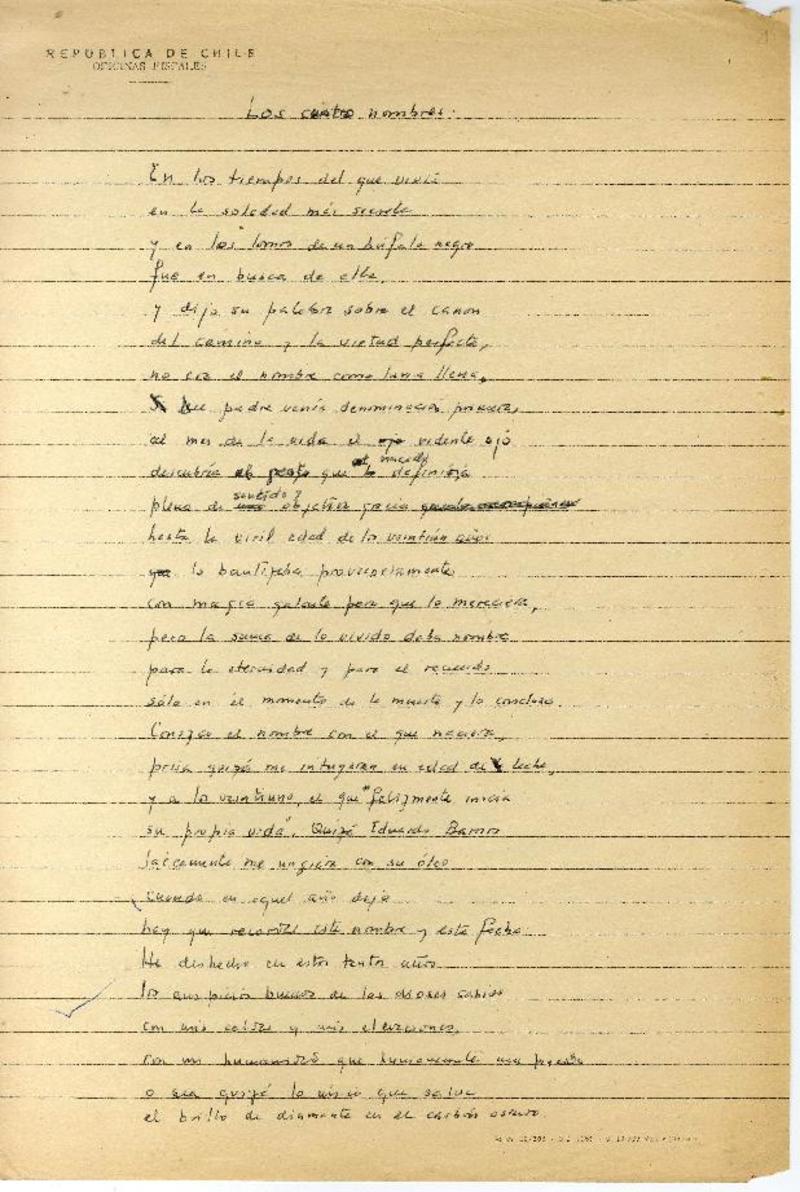 REPÚBLICA DE CHILE
OFICINAS FISCALES
Los cuatro nombres.
En los tiempos del que
en la soledad más secreta
y en los lomos de un búfalo negro
fue en busca de ella,
y dijo su palabra sobre el canon
del camino y la virtud perfecta,
no era el nombre como luna llena,
padre venía denominación primera,
al mes de la vida el ojo vidente ojo
descubría que definiría
plena de sentido? objetiva gracia
hasta la viril edad de los veintiún años
lo bautizaba provisoriamente
con magia galante para que lo mereciera,
pero la suma de lo vivido daba nombre
para la eternidad y para el recuerdo
sólo en el momento de la muerte y lo concluso.
Conozco el nombre con el que naciera,
quizá me intuyeran en edad de leche,
y a los veintiuno, el que "felizmente inicia
su propia vida". Quizá Eduardo Barrios
laicamente me ungiera con su óleo
cuando en aquel año dijo
hay que recordar este nombre y esta fecha.
He deshecho en estos tantos años
los auspicios buenos de los dioses sabios
con mis y mis elevaciones,
con mi humanidad que
o sea quizá lo mismo que
el brillo de diamante en el carbón oscuro.